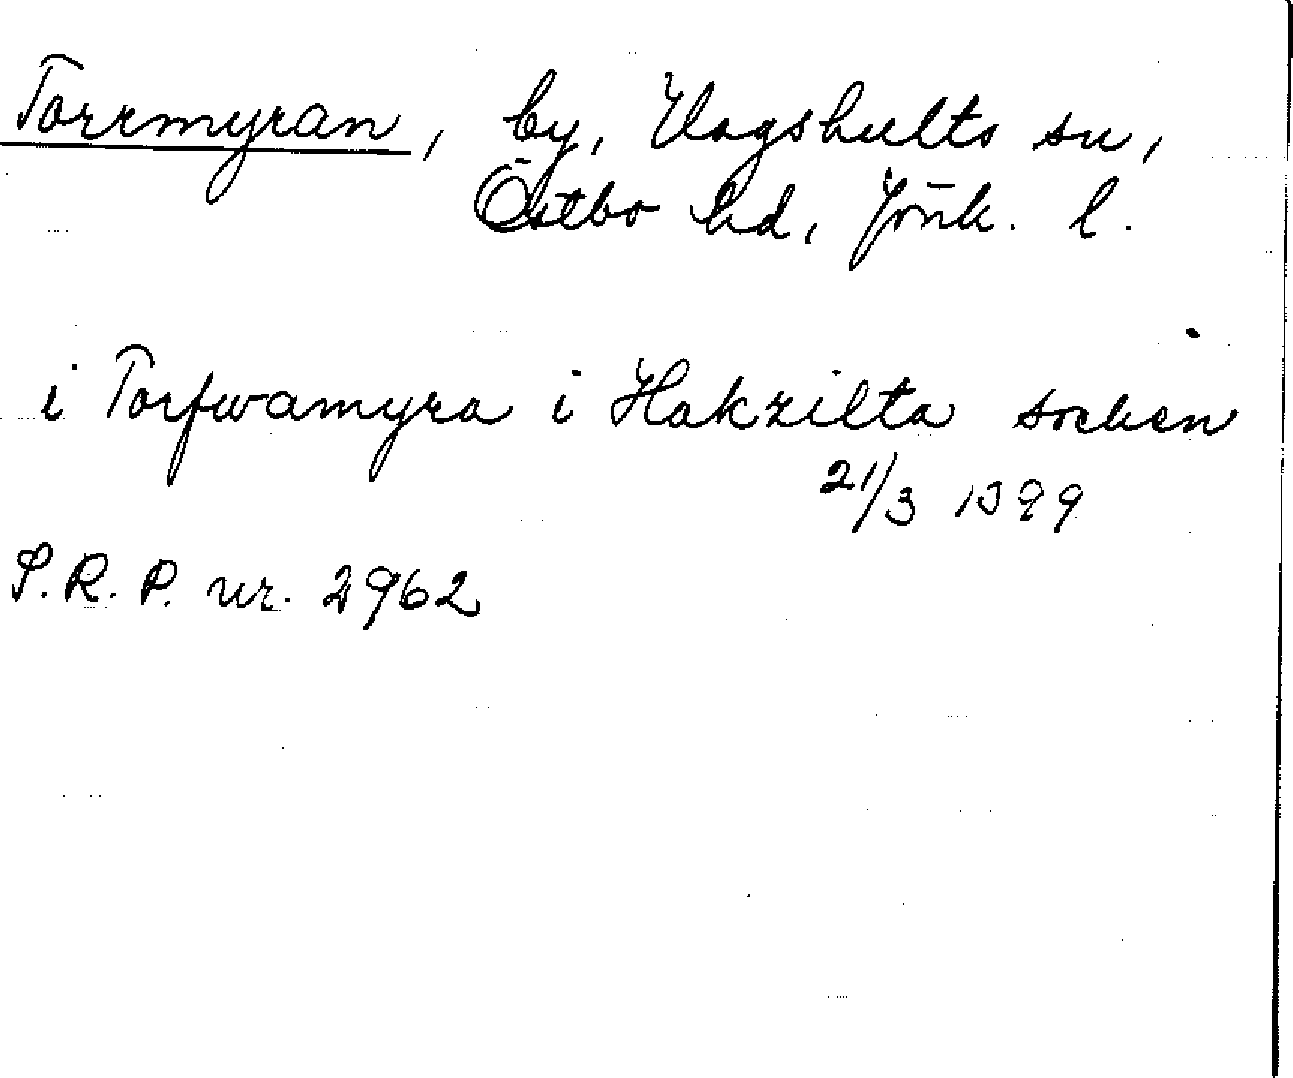 Torrmyran, by, Hagshults sn,
Östbo hd, Jönk. l.
i Torfwamyra i Hakzilta socken
21/3 1399
S.R.P. nr. 2962